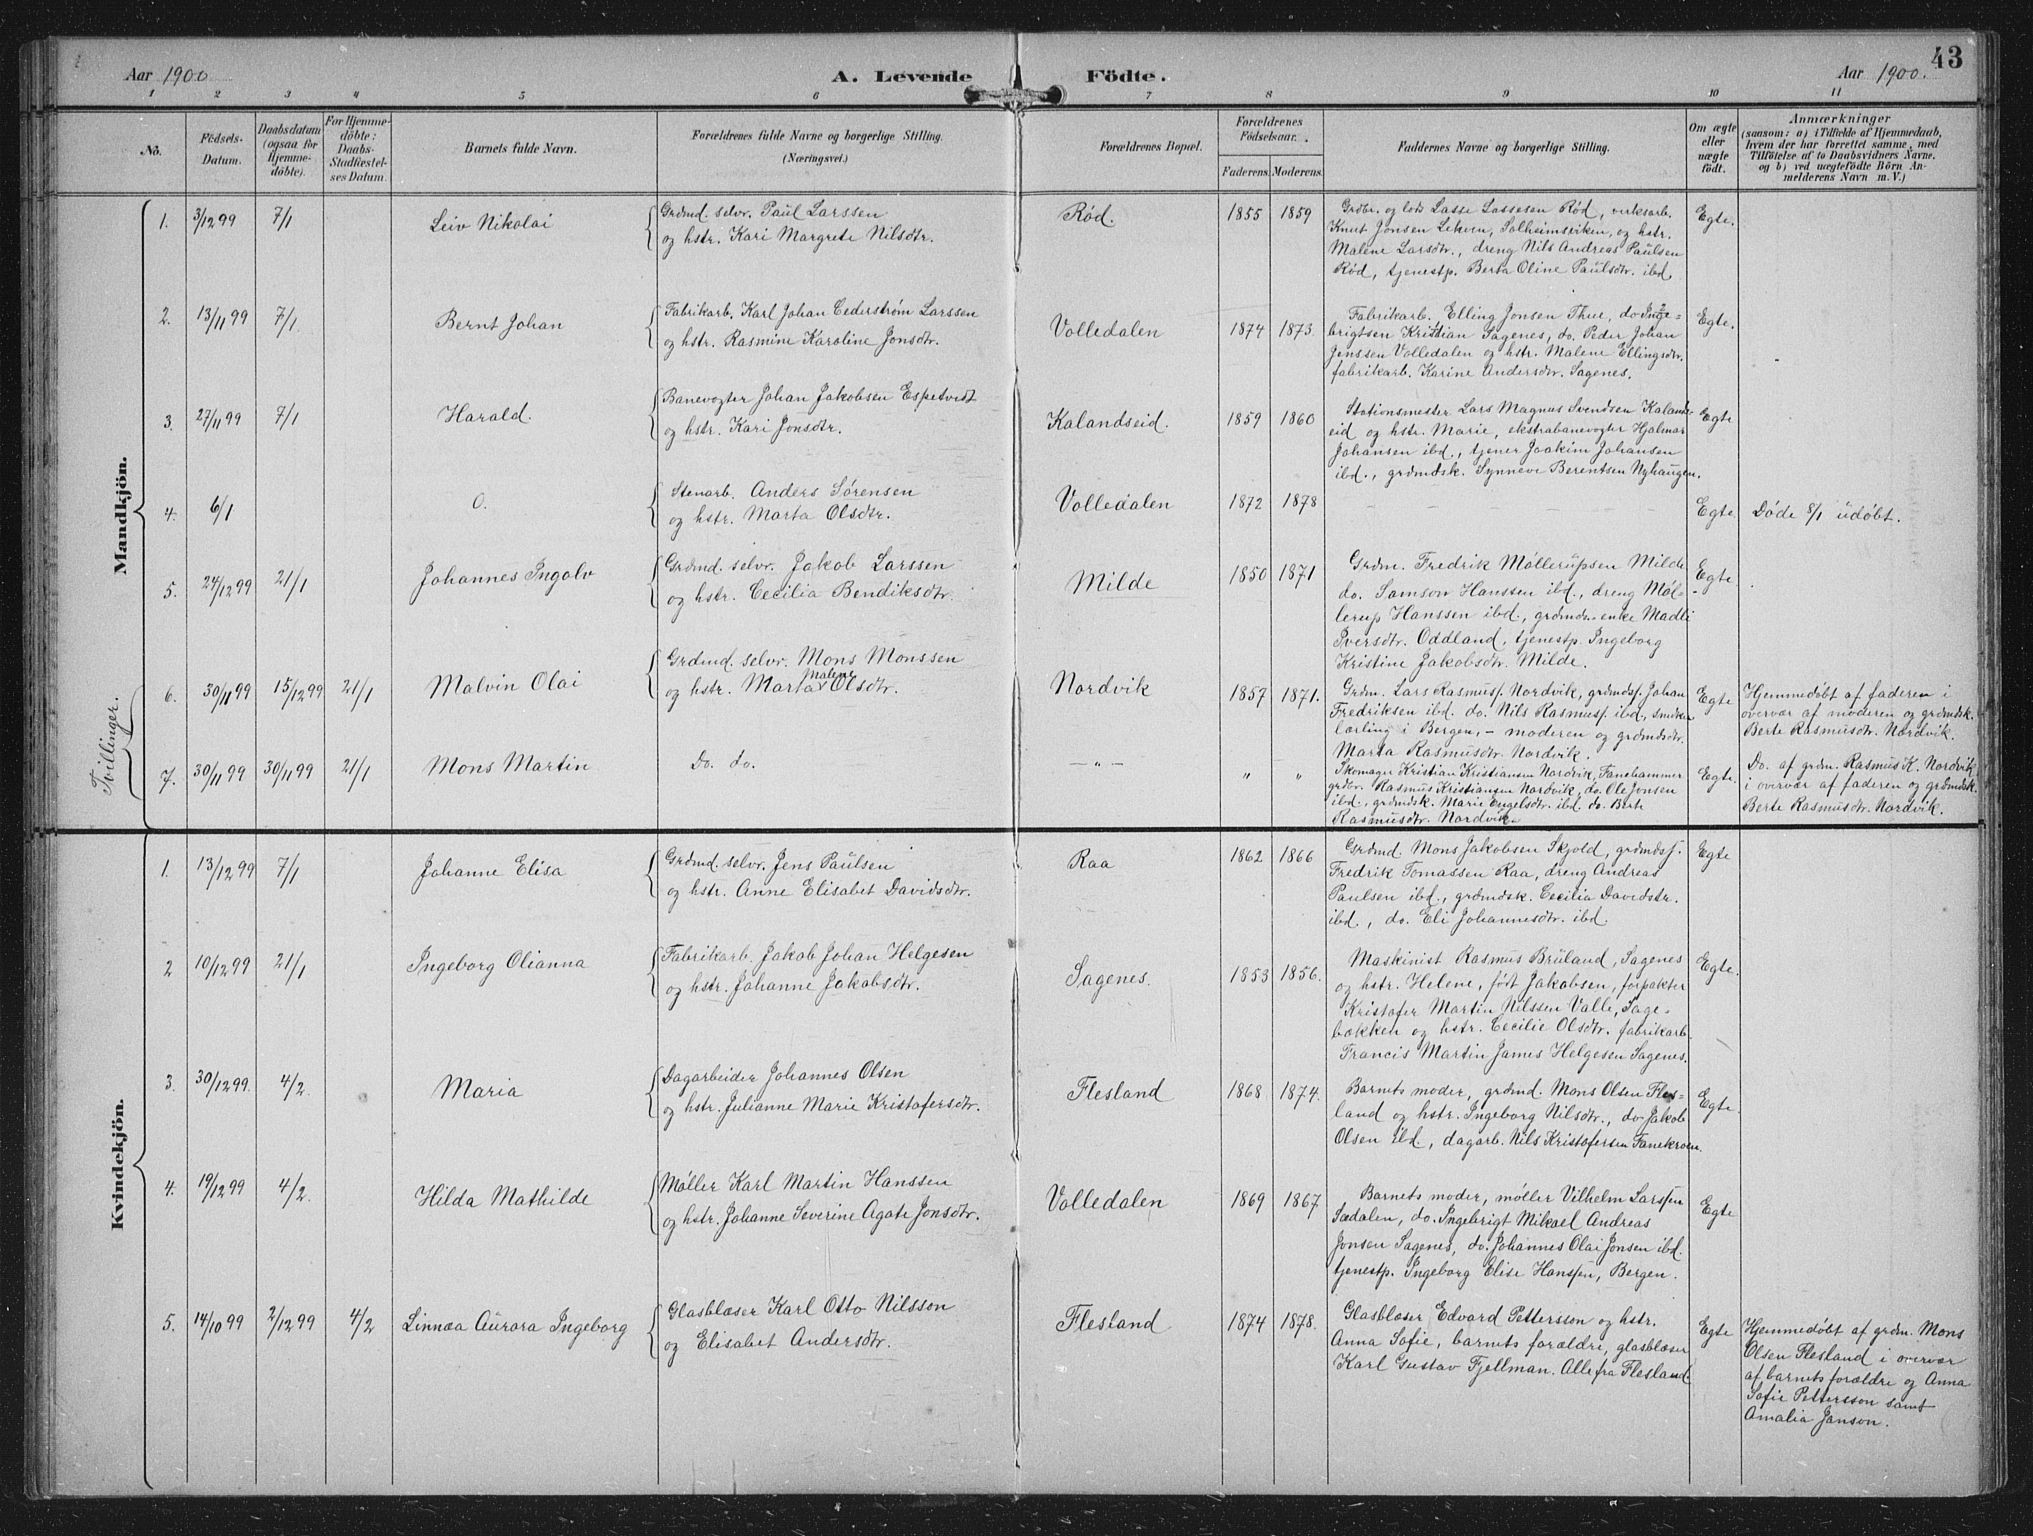 43
Aar 1900
A. Levende
Födte.
Aar 1900.
1 2 3 4 5 6 7 8 9 10 11
No.
Födsels-
Datum.
Daabsdatum
(ogsaa for
Hjemme-
döbte).
For Hjemme-
döbte:
Daabs-
Stadfæstel-
ses Datum.
Barnets fulde Navn.
Forældrenes fulde Navne og borgerlige Stilling.
(Næringsvei.)
Forældrenes Bopæl.
Forældrenes
Födselsaar.
Faderens. Moderens.
Faddernes Navne og borgerlige Stilling.
Om ægte
eller
uægte
födt.
Anmærkninger
(saasom: a) i Tilfælde af Hjemmedaab,
hvem der har forrettet samme, med
Tilföielse af to Daabsvidners Navne,
og b) ved uægtefödte Börn An-
melderens Navn m. V.)
Mandkjön.
1. 3/12 99 7/1 Leiv Nikolai
Grdmd. selvr. Paul Larssen
og hstr. Kari Margrete Nilsdtr.
Rød. 1855 1859
Grdbr. og lods Lasse Lassesen Rød, verksarb.
Knut Jonsen Lekven, Solheimsviken, og hstr.
Malene Larsdtr., dreng Nils Andreas Paulsen
Rød, tjenestp. Berta Oline Paulsdtr. ibd
Egte.
2. 13/11 99 7/1 Bernt Johan
Fabrikarb. Karl Johan Cederstrøm Larssen
og hstr. Rasmine Karoline Jonsdtr.
Volledalen 1874 1873.
Fabrikarb. Elling Jonsen Thue, do Inge-
brigtsen Kristian Sagenes, do. Peder Johan
Jenssen Volledalen og hstr. Malene Ellingsdtr.
fabrikarb. Karine Andersdtr. Sagenes.
Egte.
3. 27/11 99 7/1 Harald.
Banevogter Johan Jakobsen Espetvedt
og hstr. Kari Jonsdtr.
Kalandseid. 1859 1860
Stationsmester Lars Magnus Svendsen Kalands-
eid og hstr. Marie, ekstrabanevogter Hjalmar
Johansen ibd., tjener Joakim Johansen
ibd., grdmdsk. Synneve Berentsen Nyhaugen.
Egte
4. 6/1 0.
Stenarb. Anders Sørensen
og hstr. Marta Olsdtr.
Volledalen 1872 1878
– – – –
Egte. Døde 8/1 udøbt.
5. 24/12 99 21/1 Johannes Ingolv
Grdmd. selvr. Jakob Larssen
og hstr. Cecilia Bendiksdtr.
Milde 1850 1871
Grdm. Fredrik Møllerupsen Milde
do. Samson Hanssen ibd., dreng Møl-
lerup Hanssen ibd, grdmds enke Madli
Iversdtr. Oddland, tjenestp. Ingeborg
Kristine Jakobsdtr. Milde.
Egte.
Tvillinger.
6. 30/11 99 15/12 99 21/1 Malvin Olai
Grdmd. selvr. Mons Monssen
Malene
og hstr. Marta Olsdtr.
Nordvik 1857 1871.
Grdm. Lars Rasmuss. Nordvik, grdmdss. Johan
Fredriksen ibd. do. Nils Rasmuss. ibd., smedken
lærling i Bergen, – moderen og grdmdsdtr.
Marta Rasmusdtr. Nordvik.
Egte
Hjemmedøbt af faderen i
overvær af moderen og grdmdsk.
Berte Rasmusdtr. Nordvik.
7. 30/11 99 30/11 99 21/1 Mons Martin
Do. do. – " – " "
Skomager Kristian Kristiansen Nordvik, Fanehammer
grdbr. Rasmus Kristiansen Nordvik, do. Ole Jonsen
ibd., grdmdsk. Marie Engelsdtr. ibd. do. Berte
Rasmusdtr. Nordvik.
Egte.
Do. af grdm. Rasmus K. Nordvik
i overvær af faderen og grdmdsk.
Berte Rasmusdtr. Nordvik.
Kvindekjön.
1. 13/12 99 7/1 Johanne Elisa
Grdmd. selvr. Jens Paulsen
og hstr. Anne Elisabet Davidsdtr.
Raa 1862 1866
Grdmd. Mons Jakobsen Skjold, grdmdss.
Fredrik Tomassen Raa, dreng Andreas
Paulsen ibd., grdmdsk. Cecilia Davidstr.
ibd., do. Eli Johannesdtr. ibd.
Egte
2 10/12 99 21/1 Ingeborg Olianna
Fabrikarb. Jakob Johan Helgesen
og hstr. Johanne Jakobsdtr.
Sagenes. 1853 1856.
Maskinist Rasmus Brüland, Sagenes
og hstr. Helene, født Jakobsen, forpakter
Kristofer Martin Nilssen Valle, Sage-
bækken og hstr. Cecilie Olsdtr. fabrikarb.
Francis Martin James Helgesen Sagenes.
Egte.
3. 30/12 99. 4/2 Maria
Dagarbeider Johannes Olsen
og hstr. Julianne Marie Kristofersdtr.
Flesland 1868 1874.
Barnets moder, grdmd. Mons Olsen Fles-
land og hstr. Ingeborg Nilsdtr., do. Jakob
Olsen ibd., dagarb. Nils Kristofersen Fanekroen.
Egte.
4. 19/12 99 4/2. Hilda Mathilde
Møller Karl Martin Hanssen
og hstr. Johanne Severine Agate Jonsdtr.
Volledalen 1869 1867
Barnets moder, møller Vilhelm Larssen
Sædalen, do. Ingebrigt Mikael Andreas
Jonsen Sagenes, do. Johannes Olai Jonsen ibd.
tjenestp. Ingeborg Elise Hanssen, Bergen.
Egte
5. 14/10 99 2/12 99 4/2 Linnæa Aurora Ingeborg
Glasblæser Karl Otto Nilsson
og Elisabet Andersdtr.
Flesland 1874 1878.
Glasblæser Edvard Pettersson og hstr.
Anna Sofie, barnets forældre, glasblæser
Karl Gustav Fjellman. Alle fra Flesland.
Egte
Hjemmedøbt af grdm. Mons
Olsen Flesland i overvær
af barnets forældre og Anna
Sofie Pettersson samt
Amalia Janson.